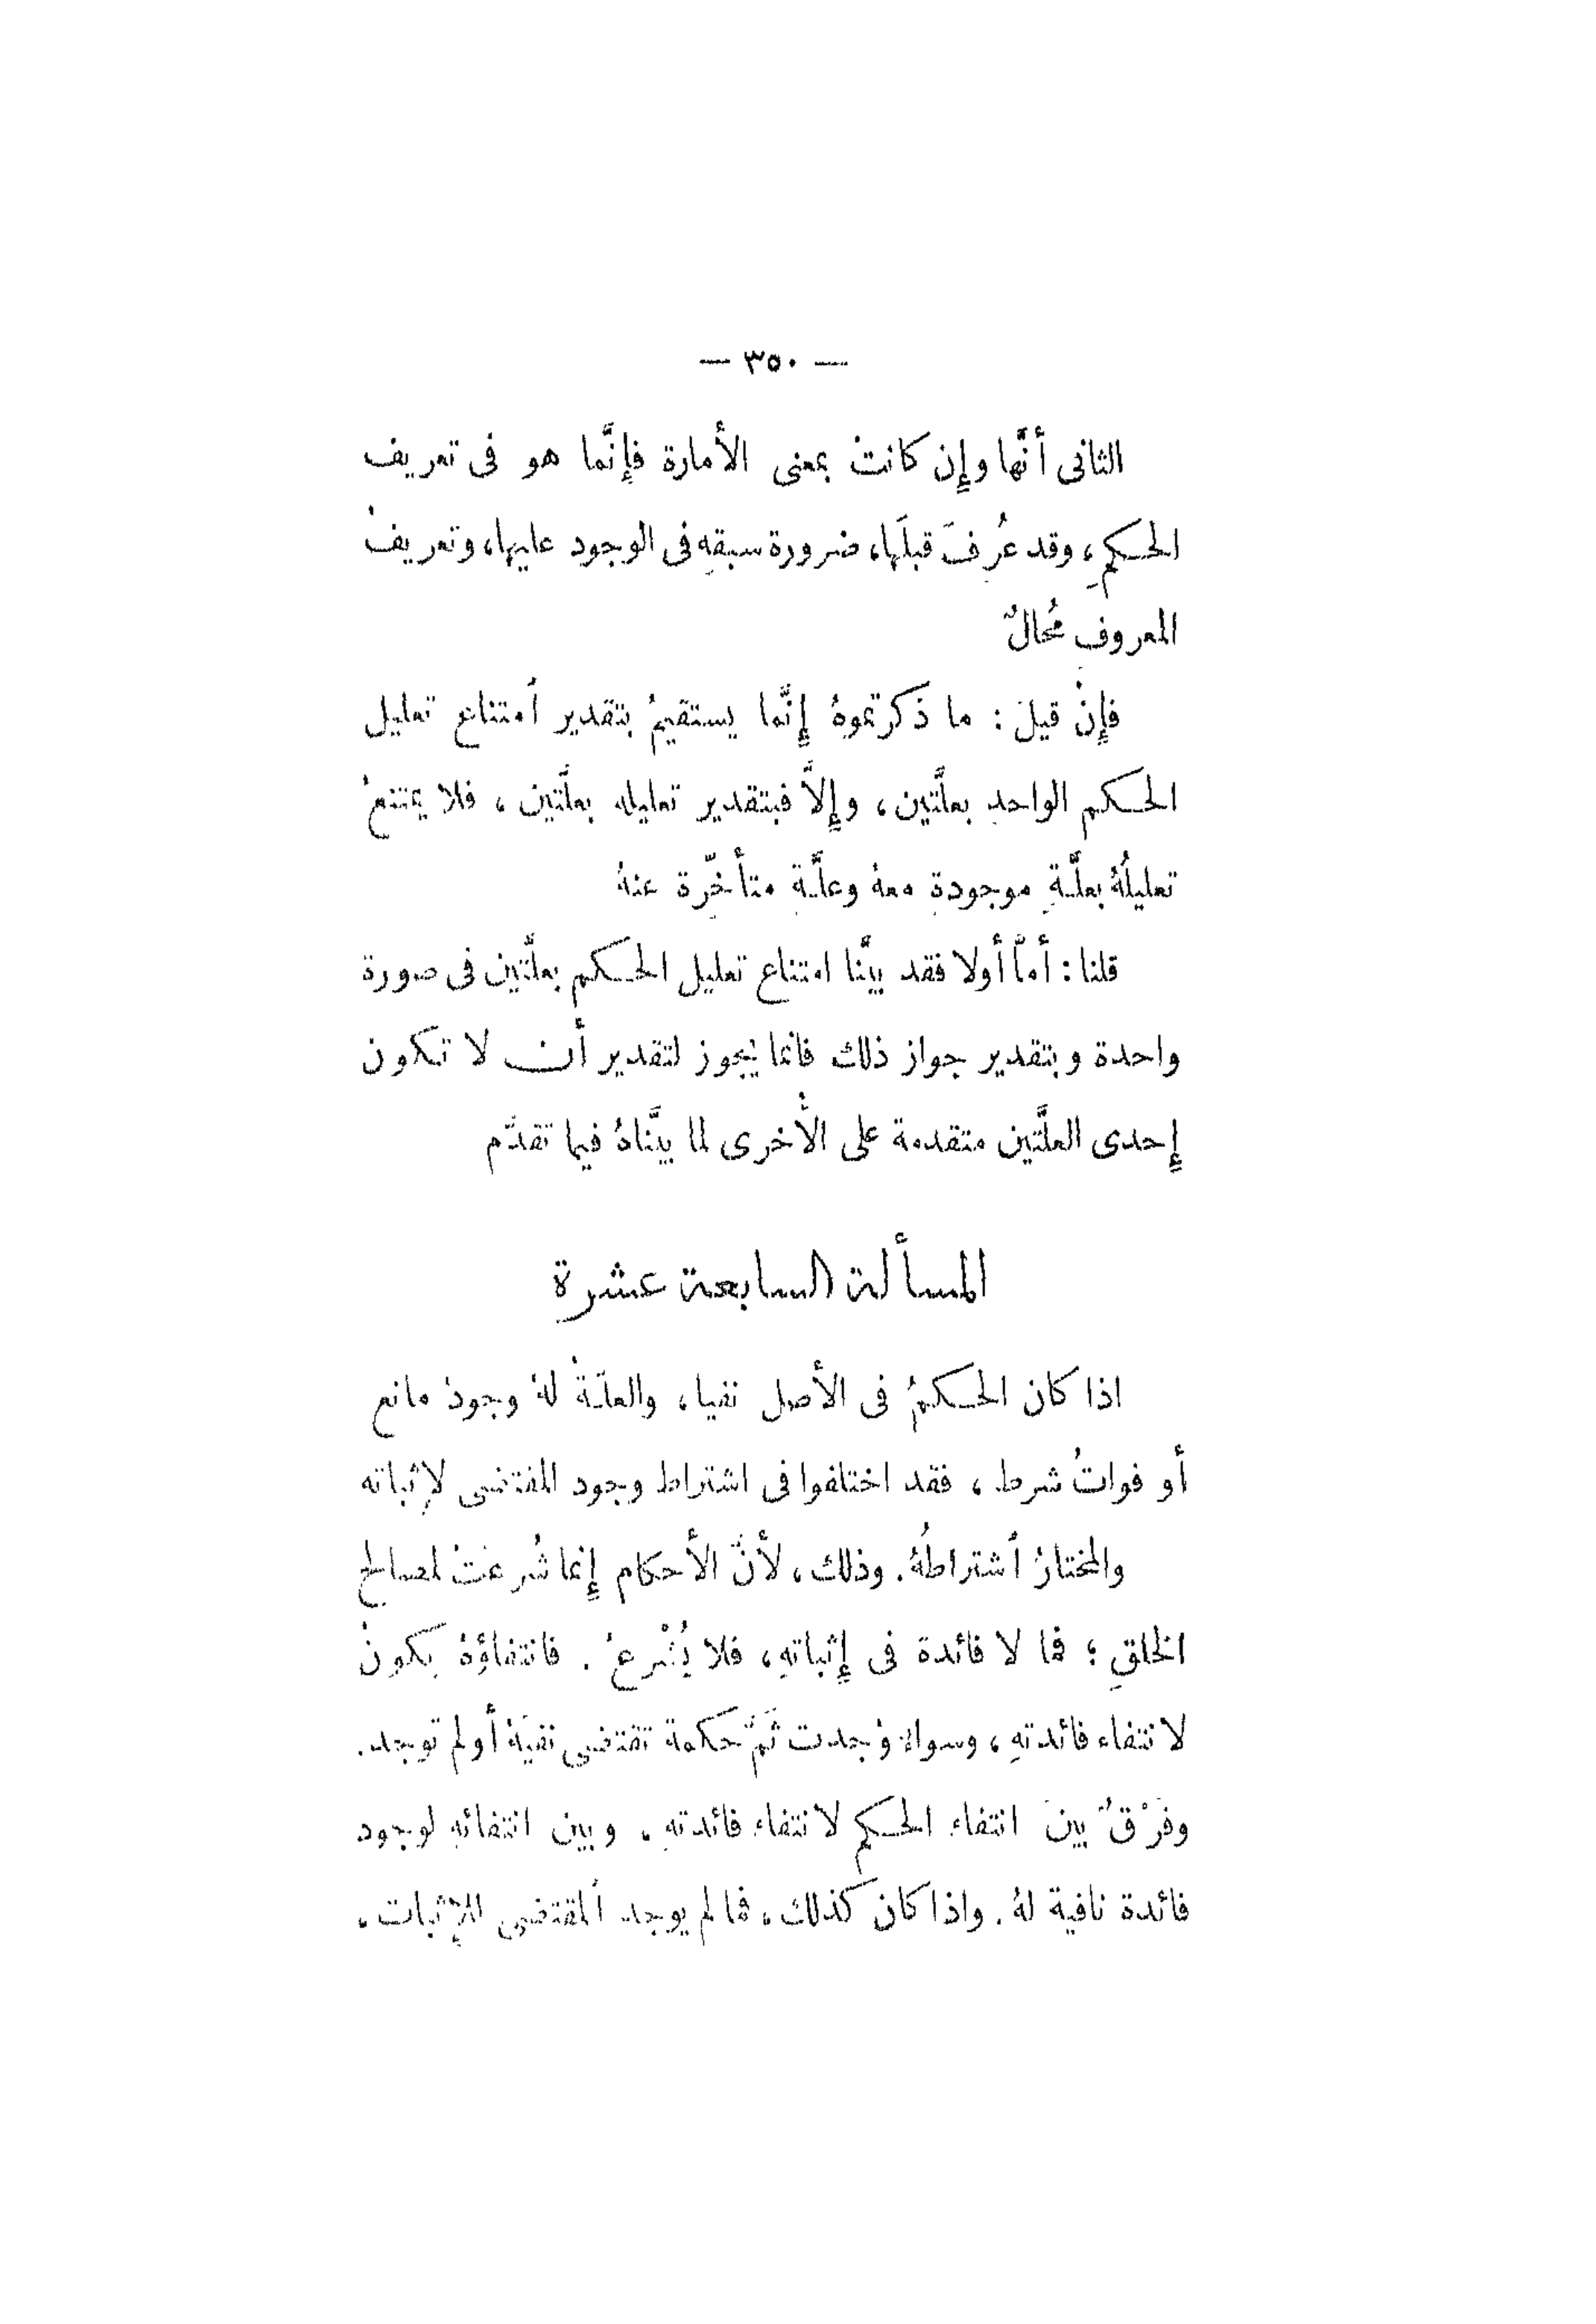 — ٣٥٠ —
الثانى أنَّها وإِن كانتْ بمعنى الأمارة فإِنَّما هو فى تعريف
الحكمِ، وقد عُرِفَ قبلَها، ضرورة سبقهِ فى الوجود عليها، وتعريفُ
المعروفِ مُحالٌ
فإِنْ قيلَ : ما ذَكرتموهُ إِنَّما يستقيمُ بتقدير اُمتناع تعليل
الحكم الواحدِ بعلَّتين، وإِلاَّ فبتقدير تعليله بعلَّتين، فلا يمتنعُ
تعليلُهُ بعلَّةٍ موجودةٍ معهُ وعلَّةٍ متأخِّرة عنهُ
قلنا : أمَّا أولا فقد بيَّنا امتناع تعليل الحكم بعلَّتين فى صورة
واحدة وبتقدير جواز ذلك فانما يجوز لتقدير أن لا تكون
إِحدى العلَّتين متقدمة على الأُخرى لما بيَّناهُ فيما تقدَّم
المسألة السابعة عشرة
اذا كان الحكمُ فى الأصل نفيا، والعلّةُ لهُ وجودُ مانع
أو فواتُ شرط، فقد اختلفوا فى اشتراط وجود المقتضى لإِثباته
والمختارُ اُشتراطُهُ. وذلك، لأنَّ الأحكام إِنما شُرعَتْ لمصالح
الخلقِ؛ فما لا فائدة فى إِثباتهِ، فلا يُشْرعُ. فانتفاؤهُ يكونُ
لانتفاء فائدتهِ، وسواء وُجدت ثَمَّ حكمة تقتضى نفيَهُ أولم توجد.
وفَرْقٌ بينَ انتفاء الحكم لانتفاء فائدتهِ، وبين انتفائهِ لوجود
فائدة نافية لهُ. واذا كان كذلك، فما لم يوجد اُلمقتضى للإِثبات،